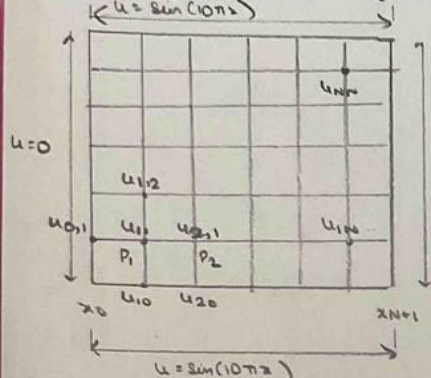 u = sin(10πx)
u_NN
u=0
u_1,2
u_0,1 u_11 u_2,1 u_1N
P_1 P_2
x_0 u_10 u_20 x_N+1
u = sin(10πx)